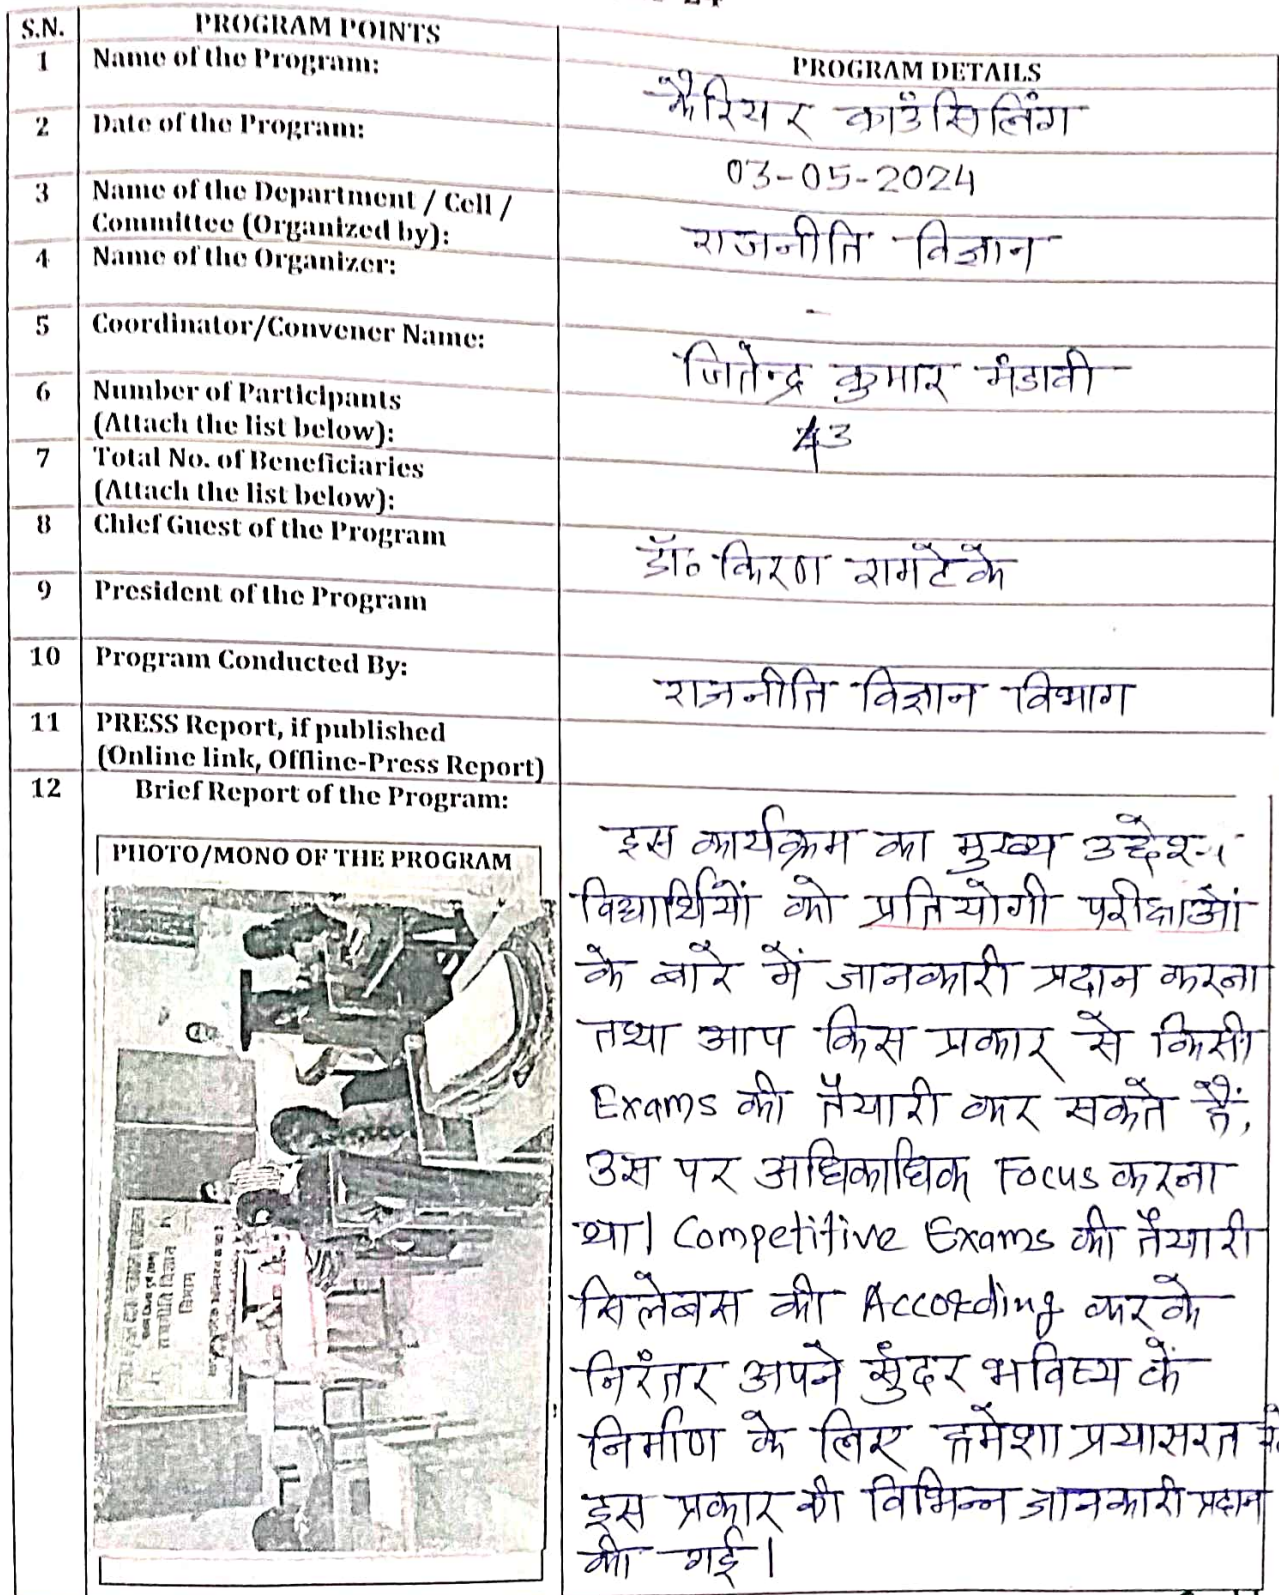 S.N. PROGRAM POINTS PROGRAM DETAILS
1 Name of the Program: कैरियर काउंसिलिंग
2 Date of the Program: 03-05-2024
3 Name of the Department / Cell /
Committee (Organized by): राजनीति विज्ञान
4 Name of the Organizer: -
5 Coordinator/Convener Name: जितेन्द्र कुमार मंडावी
6 Number of Participants
(Attach the list below): 43
7 Total No. of Beneficiaries
(Attach the list below):
8 Chief Guest of the Program डॉ० किरण रामटेके
9 President of the Program
10 Program Conducted By: राजनीति विज्ञान विभाग
11 PRESS Report, if published
(Online link, Offline-Press Report)
12 Brief Report of the Program:
PHOTO/MONO OF THE PROGRAM
राजनीति विज्ञान
विभाग
इस कार्यक्रम का मुख्य
विद्यार्थियों को प्रतियोगी परीक्षाओं
के बारे में जानकारी प्रदान करना
तथा आप किस प्रकार से किसी
Exams की तैयारी कर सकते हैं,
उस पर अधिकाधिक Focus करना
था। Competitive Exams की तैयारी
सिलेबस की According करके
निरंतर अपने सुंदर भविष्य के
निर्माण के लिए हमेशा प्रयासरत
इस प्रकार की विभिन्न जानकारी प्रदान
की गई।